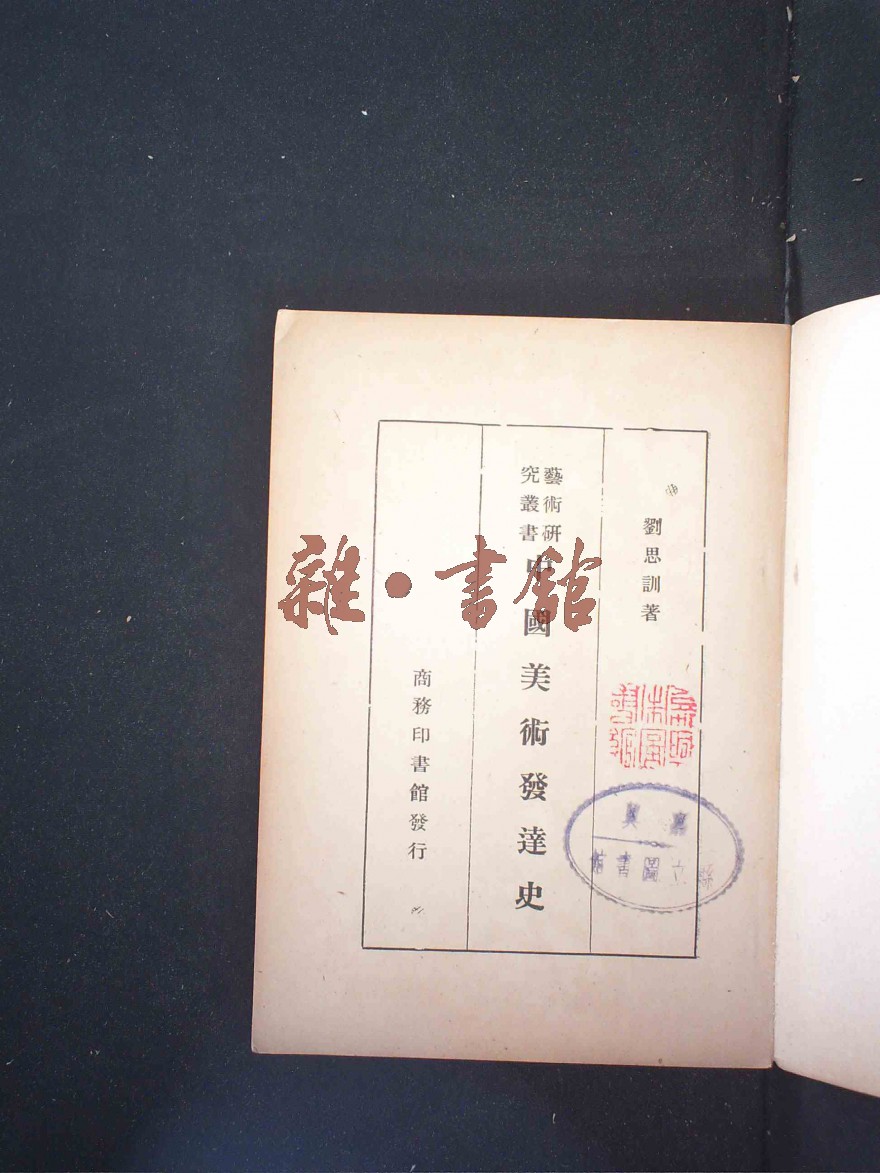 劉思訓著
藝術研
究叢書
中國美術發達史
商務印書館發行
雜·書館
縣立圖書館